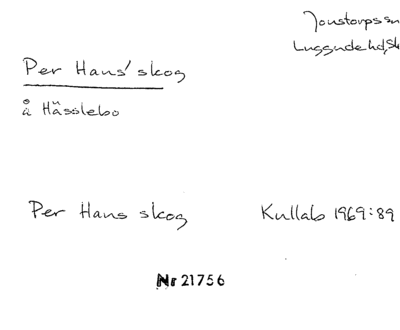 Jonstorps sn
Luggude hd, Sk
Per Hans' skog
å Hässlebo
Per Hans skog Kullab 1969:89
Nr 21756